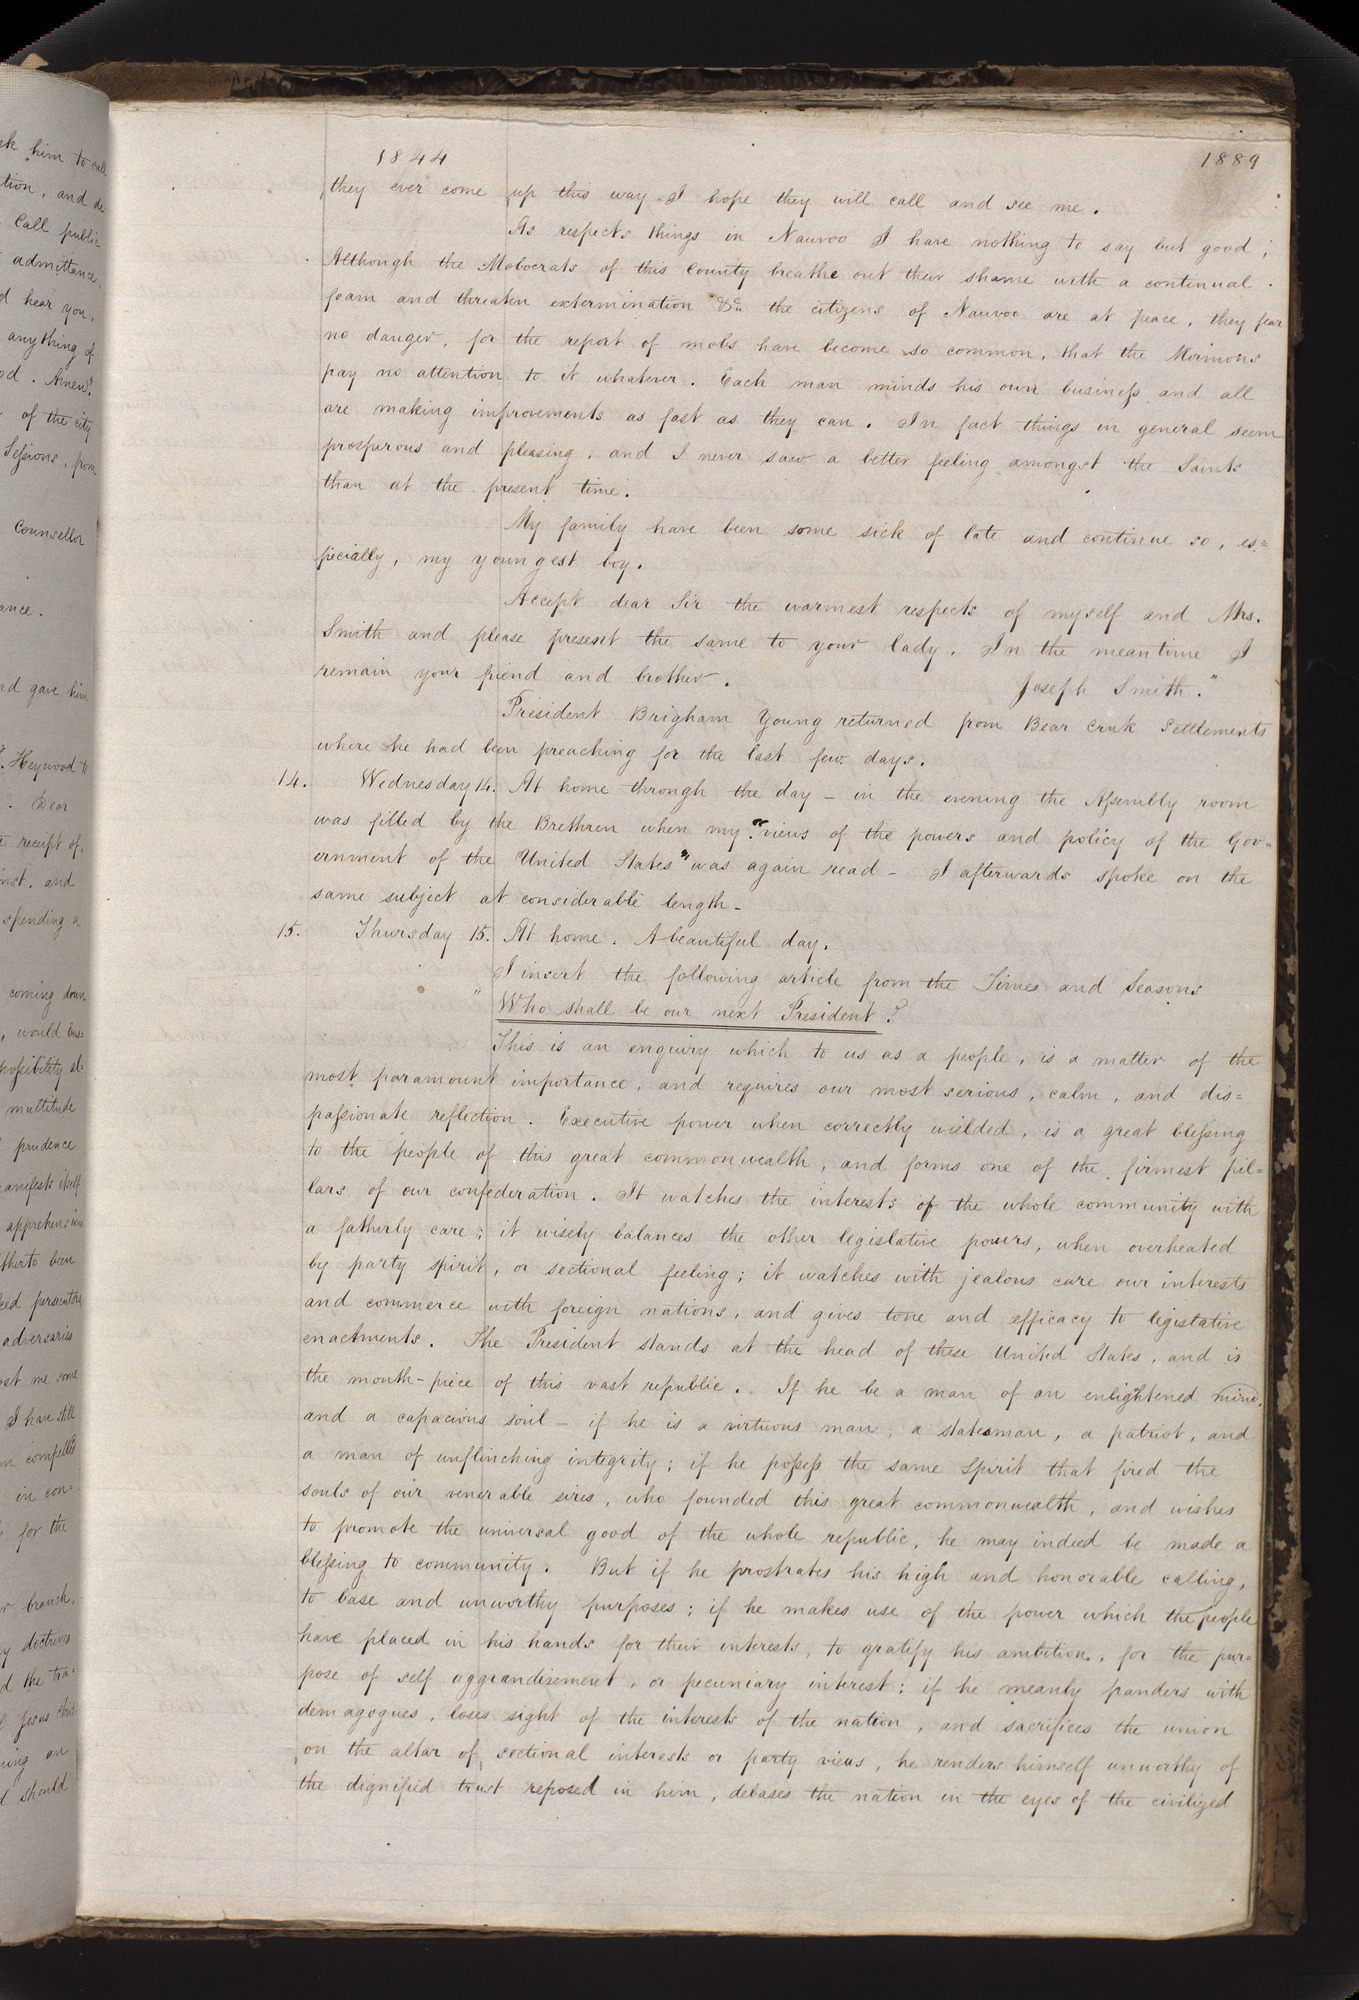 sk him to call
tion, and de
Call public
admittance,
d hear you,
anything of
od. Amen".
of the city
Sessions, from
Counsellor
ance.
nd gave him
Heywood to
Dear
receipt of,
inst. and
spending a
coming down
, would bus=
possibility el=
multitude
prudence
manifests itself
apprehensions
therto been
eed persecuting
adversaries
ost me some
I have still
en compelled
in con=
for the
r branch,
y doctrines
d the tra=
f Jesus Christ
ning an
d should
1844
1889
they ever come up this way I hope they will call and see me.
As respects things in Nauvoo I have nothing to say but good;
Although the Mobocrats of this County breathe out their shame with a continual
foam and threaten extermination &c. the citizens of Nauvoo are at peace, they fear
no danger, for the report of mobs have become so common, that the Mormons
pay no attention to it whatever. Each man minds his own business and all
are making improvements as fast as they can. In fact things in general seem
prosperous and pleasing, and I never saw a better feeling amongst the Saints
than at the present time.
My family have been some sick of late and continue so, es=
pecially, my youngest boy.
Accept dear Sir the warmest respects of myself and Mrs.
Smith and please present the same to your lady. In the meantime I
remain your friend and brother. Joseph Smith."
President Brigham Young returned from Bear Creek Settlements
where he had been preaching for the last few days.
14. Wednesday 14. At home through the day – in the evening the Assembly room
was filled by the Brethren when my "views of the powers and policy of the Gov=
ernment of the United States" was again read – I afterwards spoke on the
same subject at considerable length –
15. Thursday 15. At home. A beautiful day.
I insert the following article from the Times and Seasons
" Who shall be our next President?
This is an enquiry which to us as a people, is a matter of the
most paramount importance, and requires our most serious, calm, and dis=
passionate reflection. Executive power when correctly wielded, is a great blessing
to the people of this great commonwealth, and forms one of the firmest pil=
lars of our confederation. It watches the interests of the whole community with
a fatherly care; it wisely balances the other legislative powers, when overheated
by party spirit, or sectional feeling; it watches with jealous care our interests
and commerce with foreign nations, and gives tone and efficacy to legislative
enactments. The President stands at the head of these United States, and is
the mouth-piece of this vast republic. If he be a man of an enlightened mind,
and a capacious soul – if he is a virtuous man, a statesman, a patriot, and
a man of unflinching integrity; if he possess the same spirit that fired the
souls of our venerable sires, who founded this great commonwealth, and wishes
to promote the universal good of the whole republic, he may indeed be made a
blessing to community. But if he prostrates his high and honorable calling,
to base and unworthy purposes; if he makes use of the power which the people
have placed in his hands for their interests, to gratify his ambition, for the pur=
pose of self aggrandizement, or pecuniary interest; if he meanly panders with
demagogues, loses sight of the interests of the nation, and sacrifices the union
on the altar of sectional interests or party views, he renders himself unworthy of
the dignified trust reposed in him, debases the nation in the eyes of the civilized